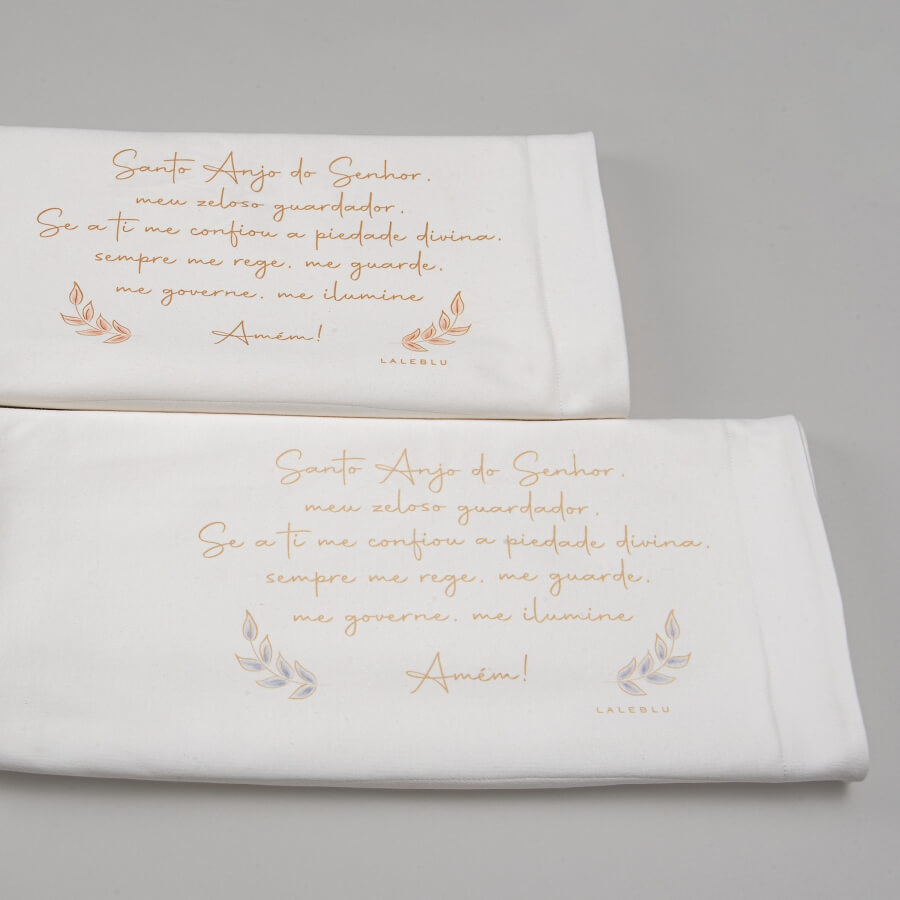 Santo Anjo do Senhor,
meu zeloso guardador,
Se a ti me confiou a piedade divina,
sempre me rege, me guarde,
me governe, me ilumine
Amém!
LALEBLU
Santo Anjo do Senhor,
meu zeloso guardador,
Se a ti me confiou a piedade divina,
sempre me rege, me guarde,
me governe, me ilumine
Amém!
LALEBLU